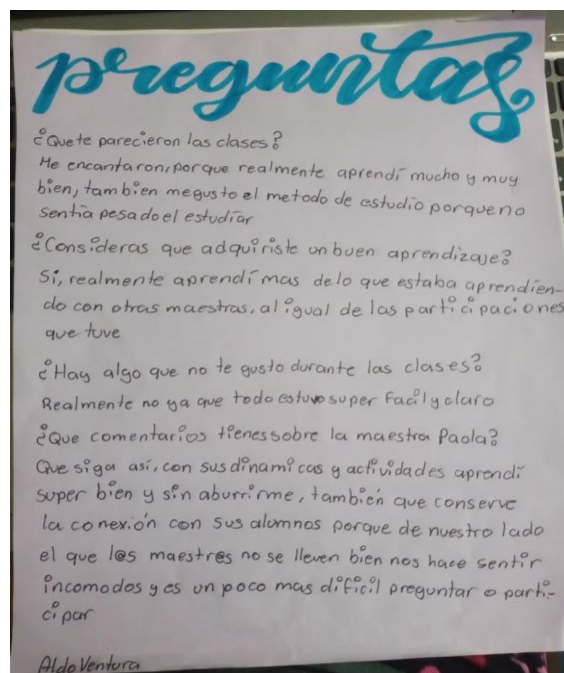 preguntas
¿Que te parecieron las clases?
Me encantaron, porque realmente aprendí mucho y muy
bien, tambien me gusto el metodo de estudio porque no
sentía pesado el estudiar
¿Consideras que adquiriste un buen aprendizaje?
Sí, realmente aprendí mas de lo que estaba aprendien-
do con otras maestras, al igual de las participaciones
que tuve
¿Hay algo que no te gusto durante las clases?
Realmente no ya que todo estuvo super facil y claro
¿Que comentarios tienes sobre la maestra Paola?
Que siga así, con sus dinamicas y actividades aprendí
super bien y sin aburrirme, también que conserve
la conexión con sus alumnos porque de nuestro lado
el que l@s maestr@s no se lleven bien nos hace sentir
incomodos y es un poco mas dificil preguntar o parti-
cipar
Aldo Ventura